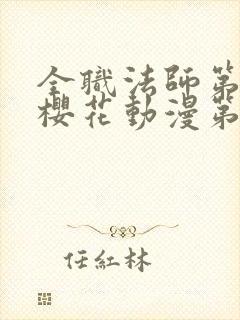 全職法師第
櫻花動漫第
任紅林